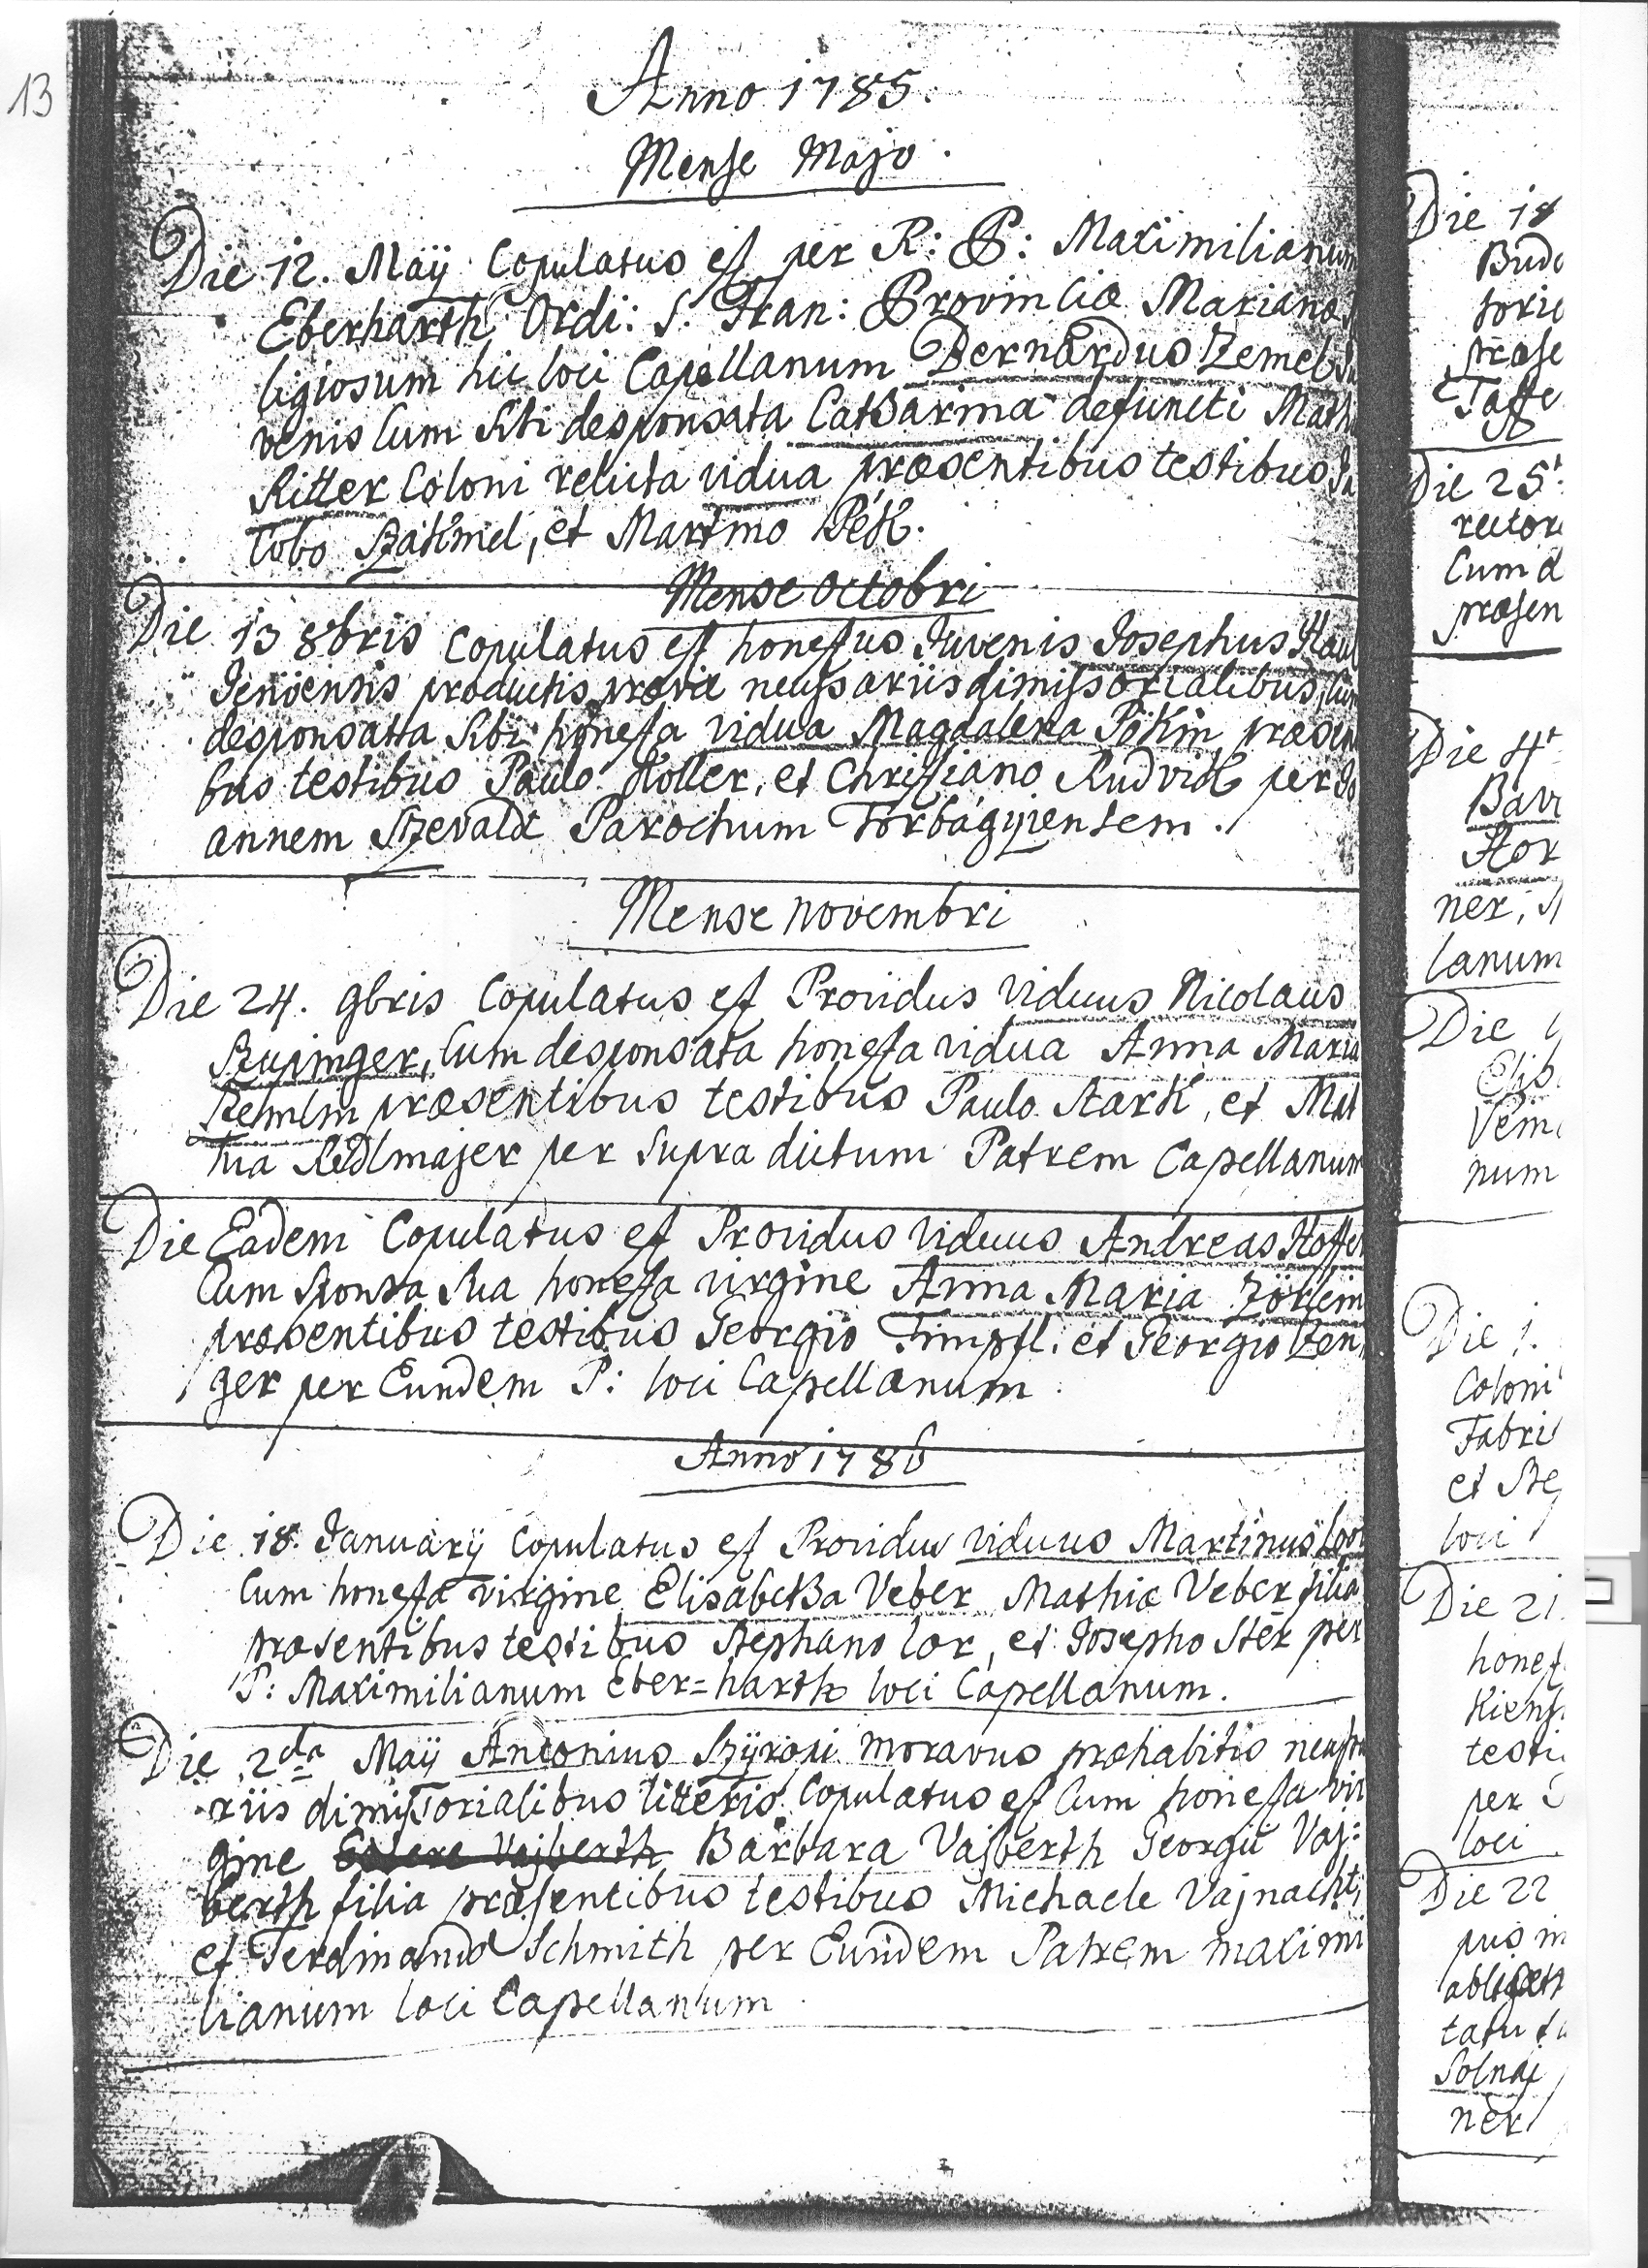 13
Anno 1785.
Mense Majo.
Die 12. Maÿ Copulatus est per R: P: Maximilianum
Eberharth Ordi: S: Fran: Provinciæ Marianæ
ligiosum hic loci Capellanum Bernardus Zemel
venis Cum Sibi desponsata Catharina defuncti Math
Ritter Coloni relicta vidua præsentibus testibus Ja
cobo et Martino Pék.
Mense Octobri
Die 13 8bris Copulatus est honestus Juvenis Josephus Haul
productis prævie necessariis dimissorialibus, cum
desponsatta Sibi honesta vidua Magdalena Pökin præsen
bus testibus Paulo Holler, et Christiano Rudvich per Jo
annem Szevald Parochum Torbágyiensem.
Mense novembri
Die 24. 9bris Copulatus est Providus viduus Nicolaus
Szupinger, Cum desponsata honesta vidua Anna Maria
præsentibus testibus Paulo Stark, et Mat
hia Redlmajer per Supra dictum Patrem Capellanum
Die Eadem Copulatus est Providus viduus Andreas Hoffer
Cum Sponsa Sua honesta virgine Anna Maria
præsentibus testibus Georgio Timpfl: et Georgio Zen
ger per Eundem P: loci Capellanum.
Anno 1786
Die 18. Januarÿ Copulatus est Providus viduus Martinus Loor
Cum honesta virgine Elisabetha Veber Mathiæ Veber filia
præsentibus testibus Stephano Lor, et Josepho Stér per
P: Maximilianum Eber=harth loci Capellanum.
Die 2da Maÿ Antonius Szÿropi moravus præhabitis necessa
riis dimissorialibus litteris Copulatus est Cum honesta vir
gine Barbara Vajberth Georgii Vaj=
berth filia præsentibus testibus Michaele Vajnacht,
et Ferdinando Schmith per Eundem Patrem maximi
lianum loci Capellanum.
Die 18
Bud
torie
præse
Die 25
rector
Cum d
præsen
Die 4
Bavi
Hor
ner, S
lanum
Die
Elis
Vem
num
Die 1.
Coloni
Fabri
et Ste
loci
Die 21.
honest
Kiens
testi
per
loci
Die 22
pus in
tatu
Solnai
ner